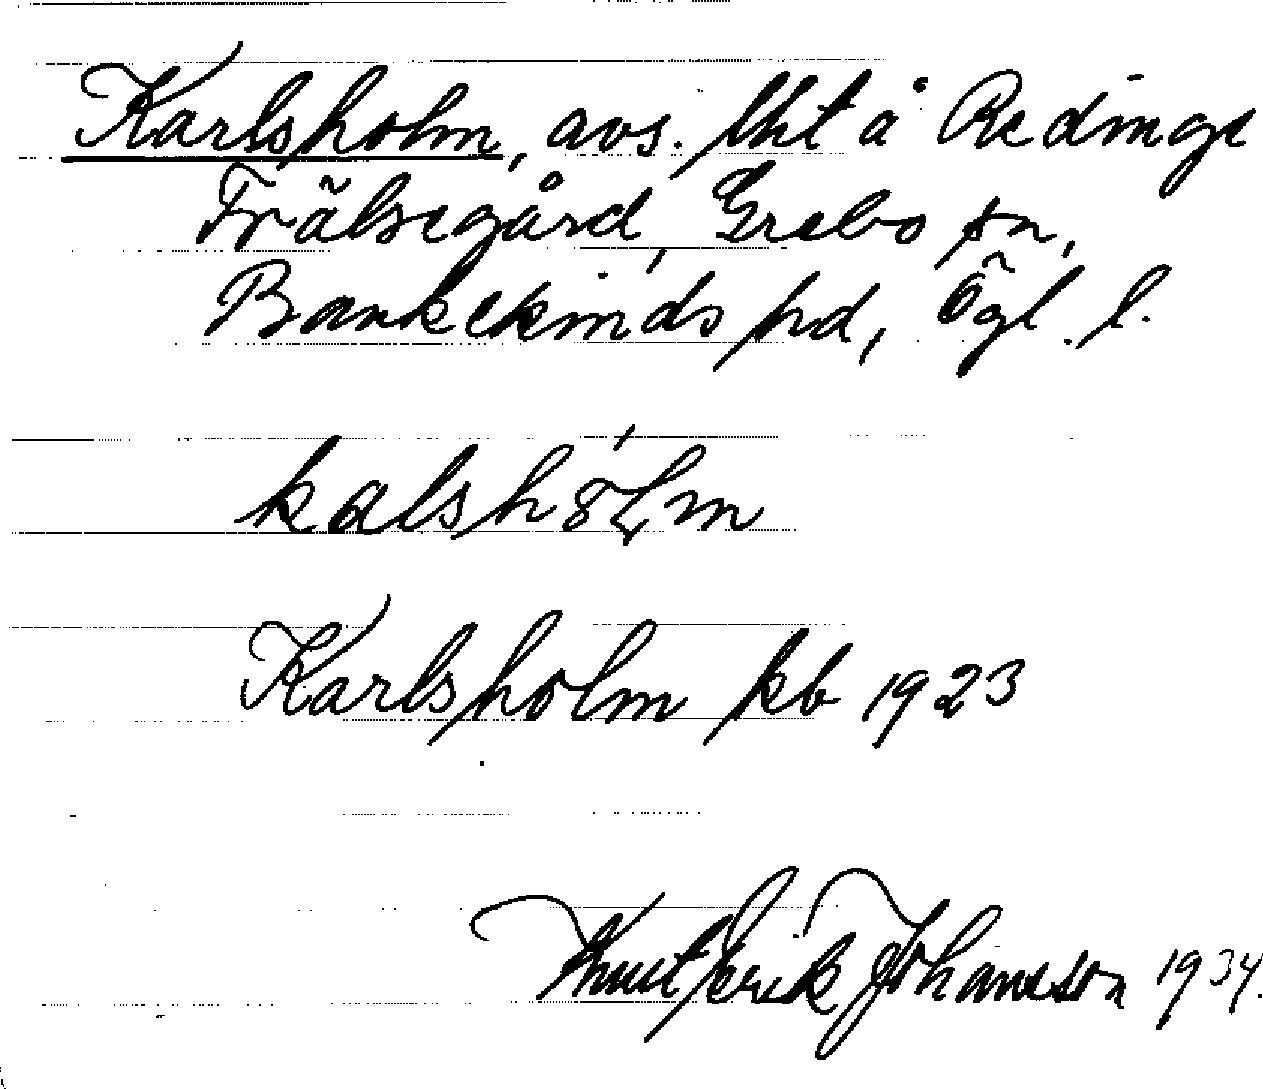 Karlsholm, avs. lht å Redinge
Frälsegård, Grebo sn,
Bankekinds hd, Ögl. l.
kalshólm
Karlsholm kb 1923
Knut Erik Johansson 1934.